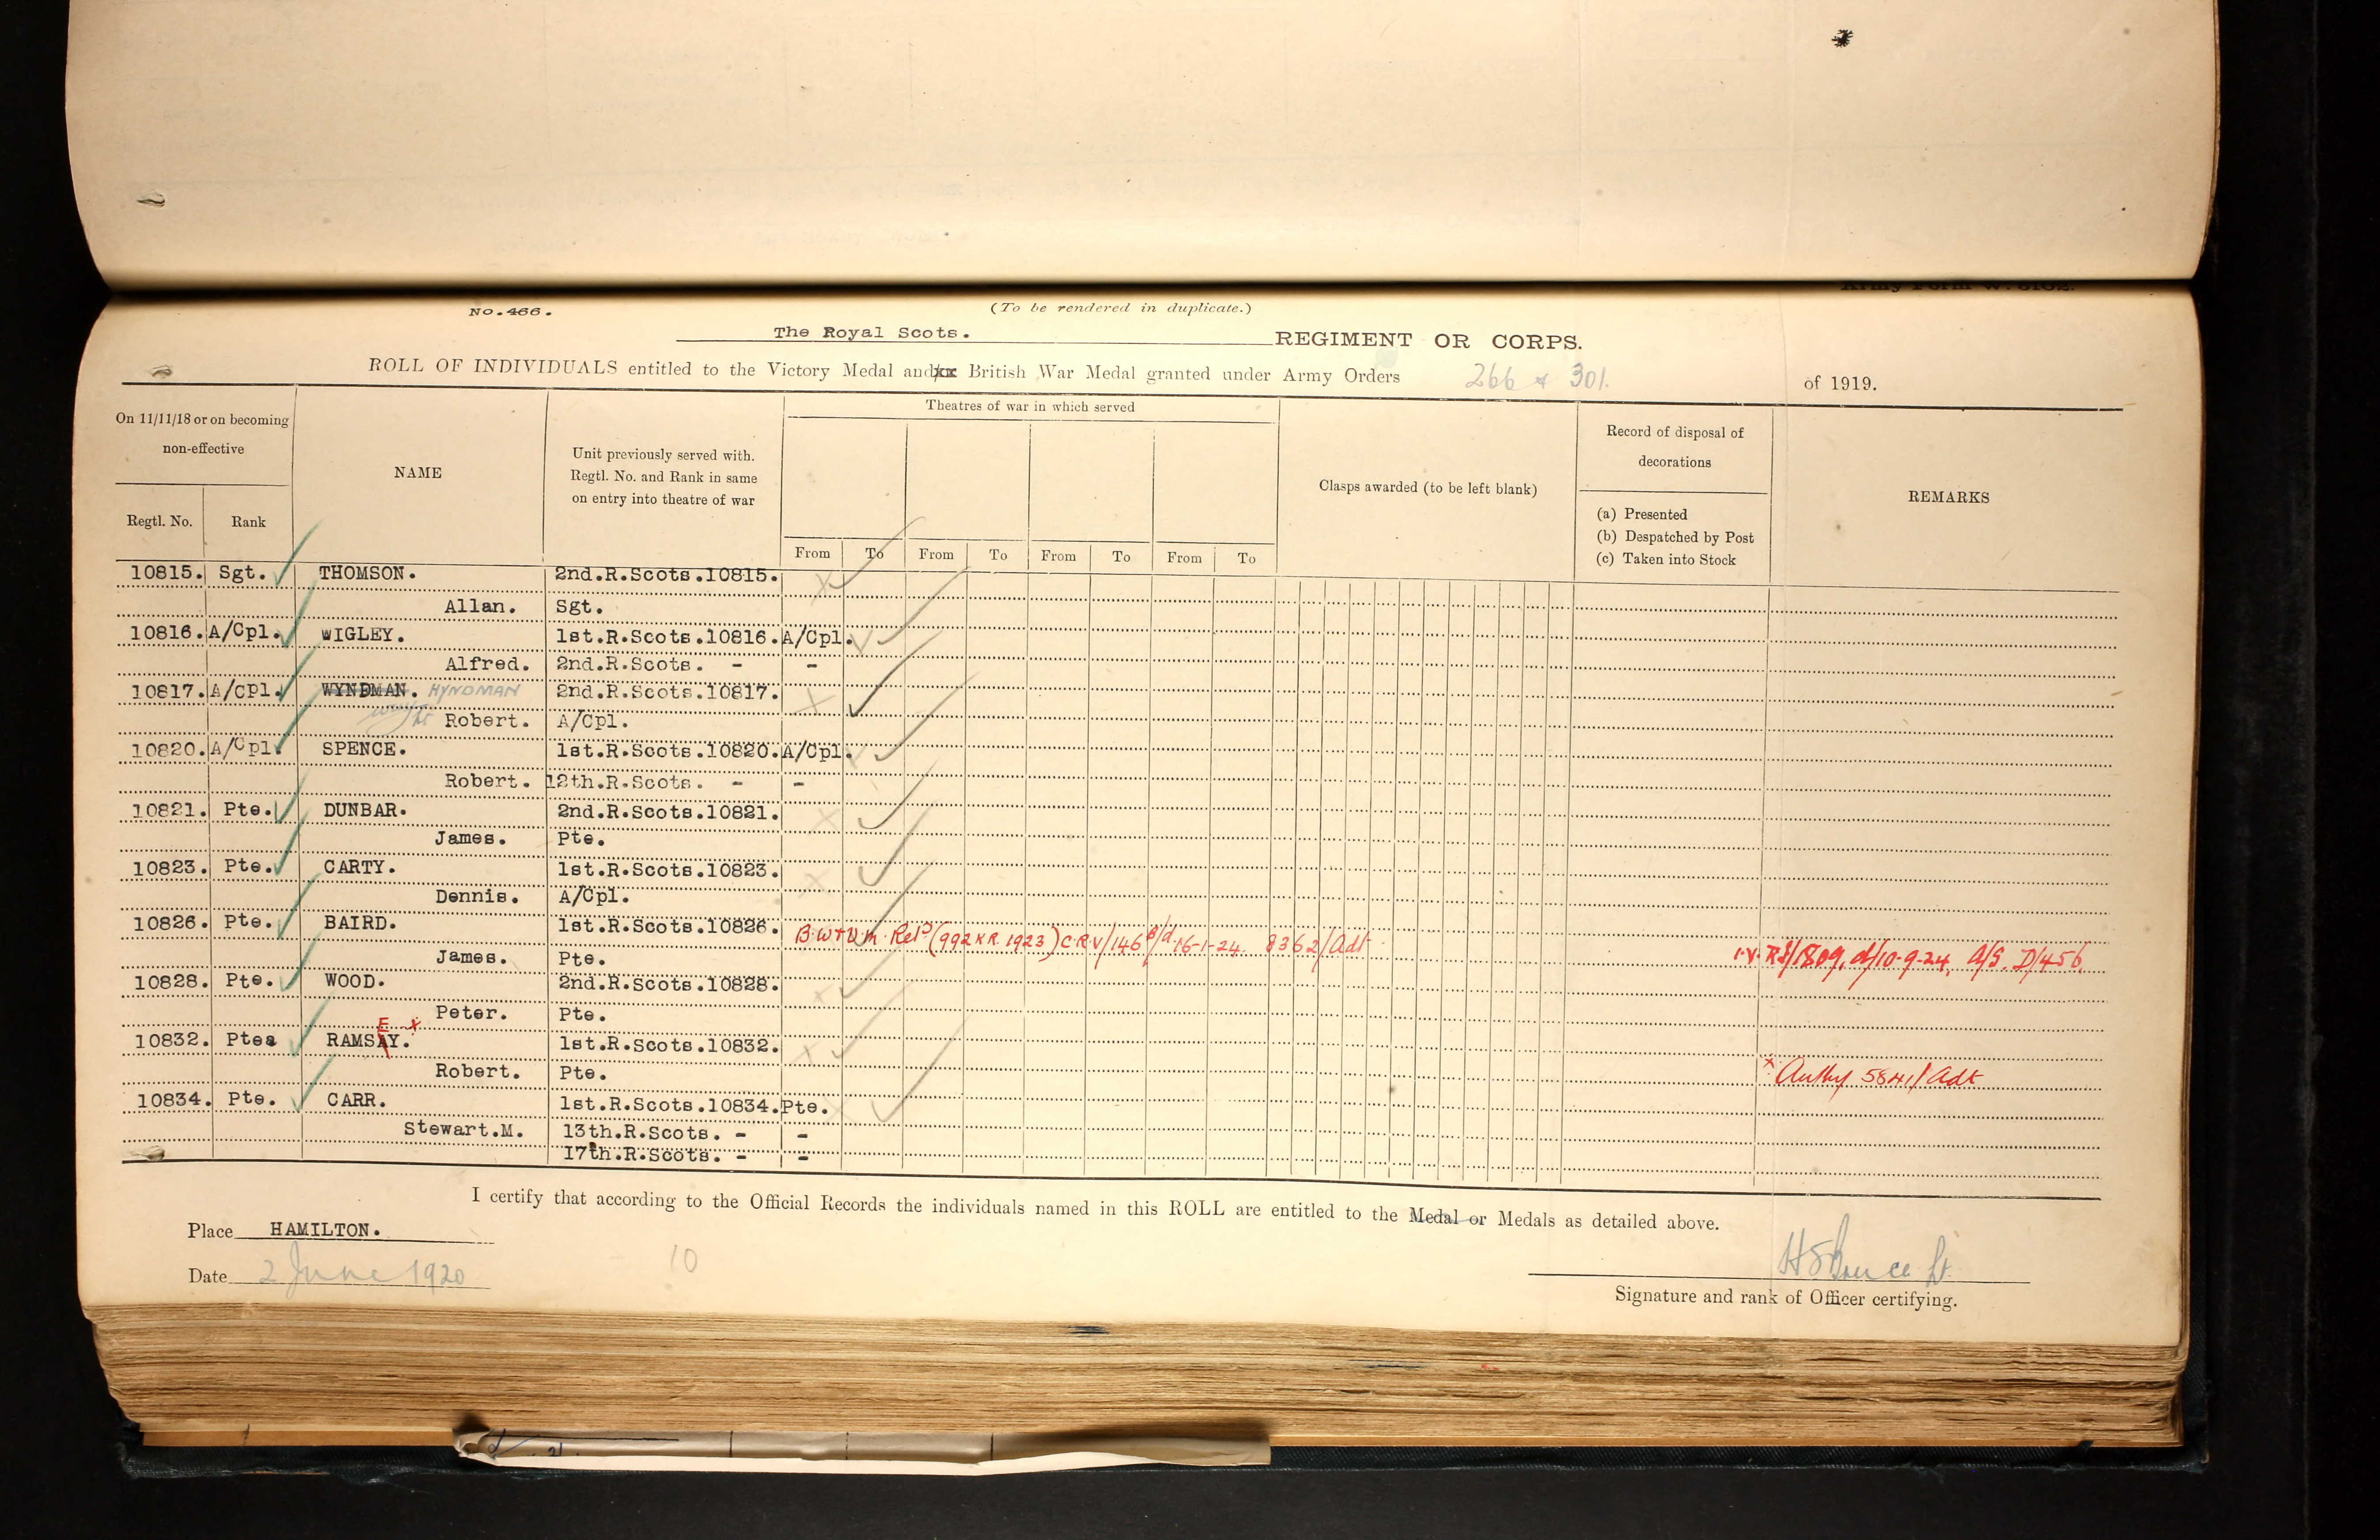 No.466.
(To be rendered in duplicate.)
The Royal Scots. REGIMENT OR CORPS.
ROLL OF INDIVIDUALS entitled to the Victory Medal and British War Medal granted under Army Orders 266 & 301. of 1919.
On 11/11/18 or on becoming non-effective
Regtl. No.
Rank
NAME
Unit previously served with. Regtl. No. and Rank in same on entry into theatre of war
Theatres of war in which served
From To From To From To From To
Clasps awarded (to be left blank)
Record of disposal of decorations
(a) Presented
(b) Despatched by Post
(c) Taken into Stock
REMARKS
10815. Sgt. THOMSON. 2nd.R.Scots.10815.
Allan. Sgt.
10816. A/Cpl. WIGLEY. 1st.R.Scots.10816.A/Cpl.
Alfred. 2nd.R.Scots. - -
10817. A/Cpl. WYNDMAN. HYNDMAN 2nd.R.Scots.10817.
Robert. A/Cpl.
10820. A/Cpl. SPENCE. 1st.R.Scots.10820.A/Cpl.
Robert. 12th.R.Scots. - -
10821. Pte. DUNBAR. 2nd.R.Scots.10821.
James. Pte.
10823. Pte. CARTY. 1st.R.Scots.10823.
Dennis. A/Cpl.
10826. Pte. BAIRD. 1st.R.Scots.10826.
B.W+V.M. Retd (992 KR 1923) C.R.V/146 d/16-1-24. 8362/Adt
James. Pte. I.V. RS/1809. d/10-9-24. A/G. D/456.
10828. Pte. WOOD. 2nd.R.Scots.10828.
Peter. Pte.
E x
10832. Ptea RAMSAY. 1st.R.Scots.10832.
Robert. Pte. x Authy 5841/Adt
10834. Pte. CARR. 1st.R.Scots.10834.Pte.
Stewart.M. 13th.R.Scots. - -
17th.R.Scots. - -
I certify that according to the Official Records the individuals named in this ROLL are entitled to the Medal or Medals as detailed above.
Place HAMILTON.
Date 2 June 1920
10
H S Bruce Lt.
Signature and rank of Officer certifying.